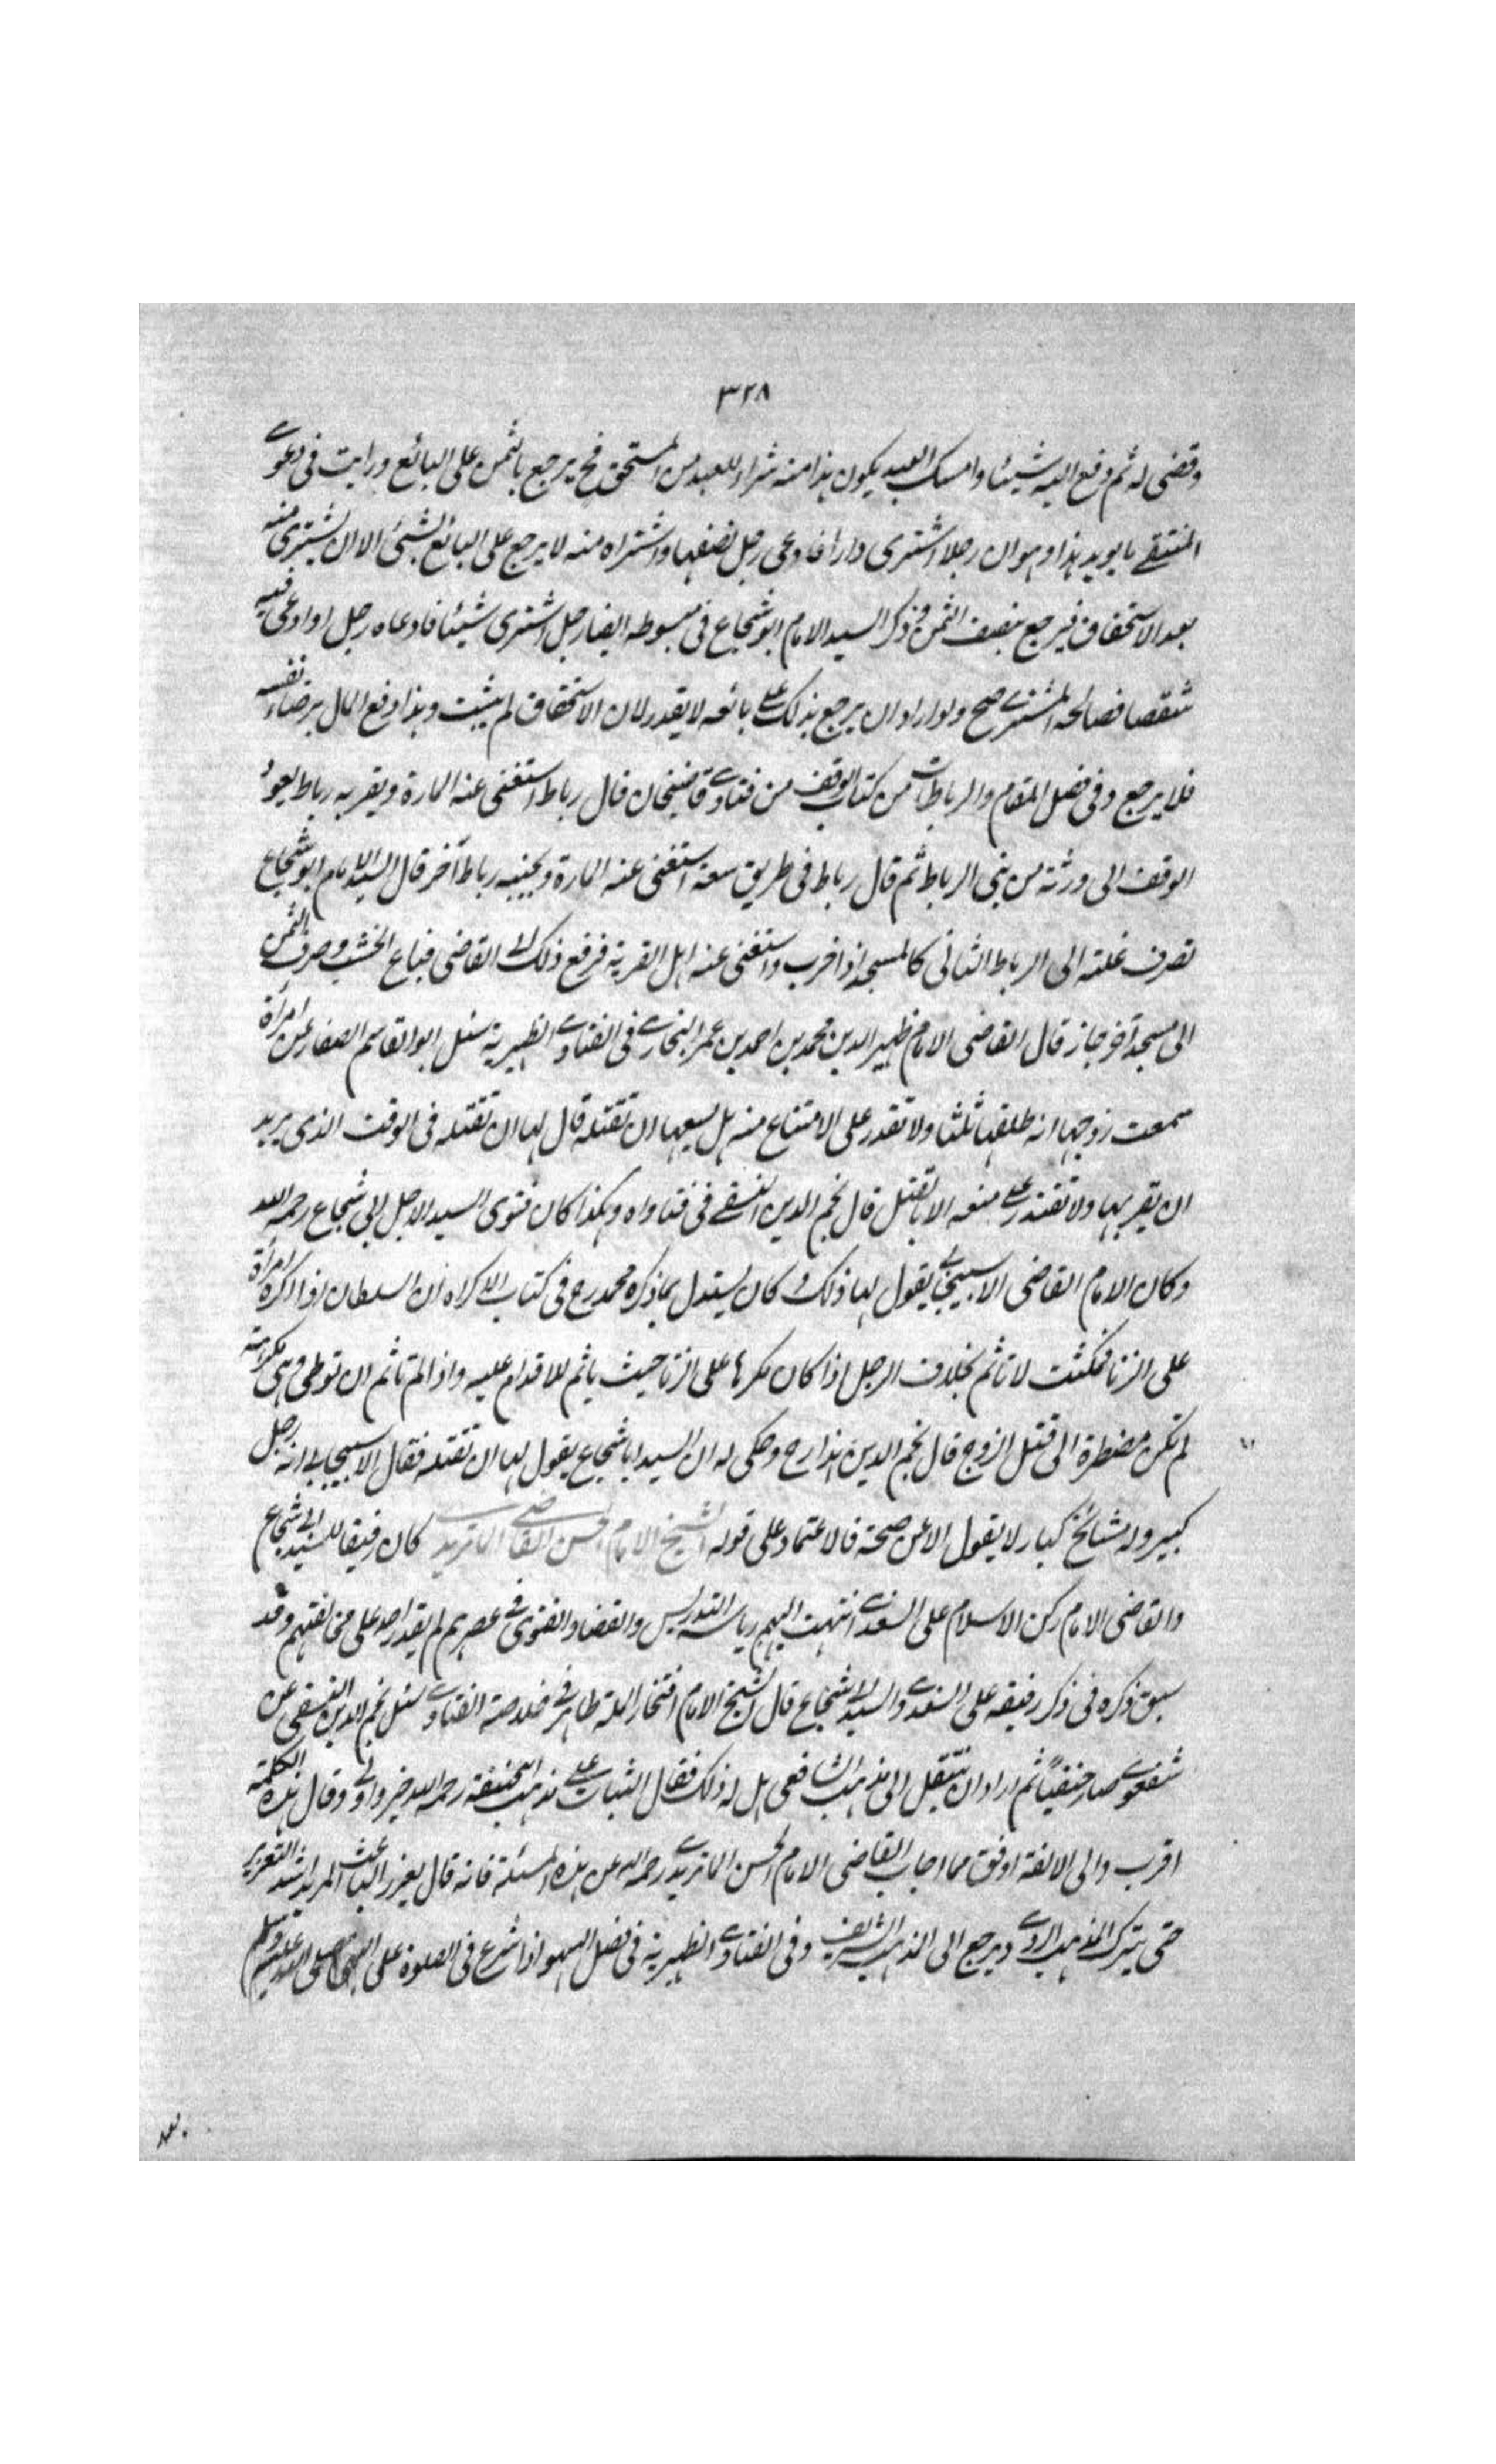 ٣٢٨
وقضى له ثم دفع اليه شيئا وامسك العبد يكون هذا منه شراء للعبد من المستحق فح يرجع بالثمن على البائع ورايت فى دعوى
المنتقى ما يويد هذا وهو ان رجلا اشترى دارا فادعى رجل نصفها واشتراه منه لا يرجع على البائع بشئ الا ان يشترى منه
بعد الاستحقاق فيرجع بنصف الثمن وذكر السيد الامام ابو شجاع فى مبسوطه ايضا رجل اشترى شيئا فادعاه رجل او ادعى فيه
شقصا فصالحه المشترى صح ولو اراد ان يرجع بذلك على بائعه لا يقدر لان الاستحقاق لم يثبت وهذا دفع المال برضاء نفسه
فلا يرجع وفى فصل المقام والرباطات من كتاب الوقف من فتاوى قاضيخان قال رباط استغنى عنه المارة وبقربه رباط يعود
الوقف الى ورثة من بنى الرباط ثم قال رباط فى طريق سعة استغنى عنه المارة وبجنبه رباط آخر قال السيد الامام ابو شجاع
تصرف غلته الى الرباط الثانى كالمسجد اذا خرب واستغنى عنه اهل القرية فرفع ذلك الى القاضى فباع الخشب وصرف الثمن
الى مسجد آخر جاز قال القاضى الامام ظهير الدين محمد بن احمد بن عمر البخارى فى الفتاوى الظهيرية سئل ابو القاسم الصفار عن امرأة
سمعت زوجها انه طلقها ثلثا ولا تقدر على الامتناع منه هل يسعها ان تقتله قال لها ان تقتله فى الوقت الذى يريد
ان يقربها ولا تقتدر على منعه الا بالقتل قال نجم الدين النسفى فى فتاواه وهكذا كان فتوى السيد الاجل ابى شجاع رحمه الله
وكان الامام القاضى الاسبيجابى يقول لها ذلك و كان يستدل بما ذكره محمد رح فى كتاب الاكراه ان السلطان اذا اكره امرأة
على الزنا فمكثت لا تاثم بخلاف الرجل اذا كان مكرها على الزنا حيث ياثم للاقدام عليه واذا لم تاثم ان توطى وهى مكرهة
لم تكن مضطرة الى قتل الزوج قال نجم الدين هذا رح وحكى له ان السيد ابا شجاع يقول لها ان تقتله فقال الاسبيجابى انه رجل
كبير وله مشائخ كبار لا يقول الا عن صحة فالاعتماد على قوله الشيخ الامام الحسن القاضى الماتريدى كان رفيقا للسيد ابى شجاع
والقاضى الامام ركن الاسلام على السغدى انتهت اليهم رياسة التدريس والقضا والفتوى فى عصرهم لم يقدر احد على مخالفتهم وقد
سبق ذكره فى ذكر رفيقه على السغدى والسيد ابى شجاع قال الشيخ الامام افتخار الملة طاهر فى خلاصة الفتاوى سئل نجم الدين النسفى عن
شفعوى صار حنفيًا ثم اراد ان ينتقل الى مذهب الشافعى هل له ذلك فقال الثبات على مذهب ابى حنيفة رحمه الله خير واولى وقال هذه الكلمة
اقرب والى الالفة اوفق مما اجاب القاضى الامام الحسن الماتريدى رحمه الله عن هذه المسئلة فانه قال يعزر الباعث المريد اشد التعزير
حتى يترك المذهب الردى ويرجع الى المذهب الشريف وفى الفتاوى الظهيرية فى فصل السهو اذا شرع فى الصلوة على النبى صلى الله عليه وسلم
بعد